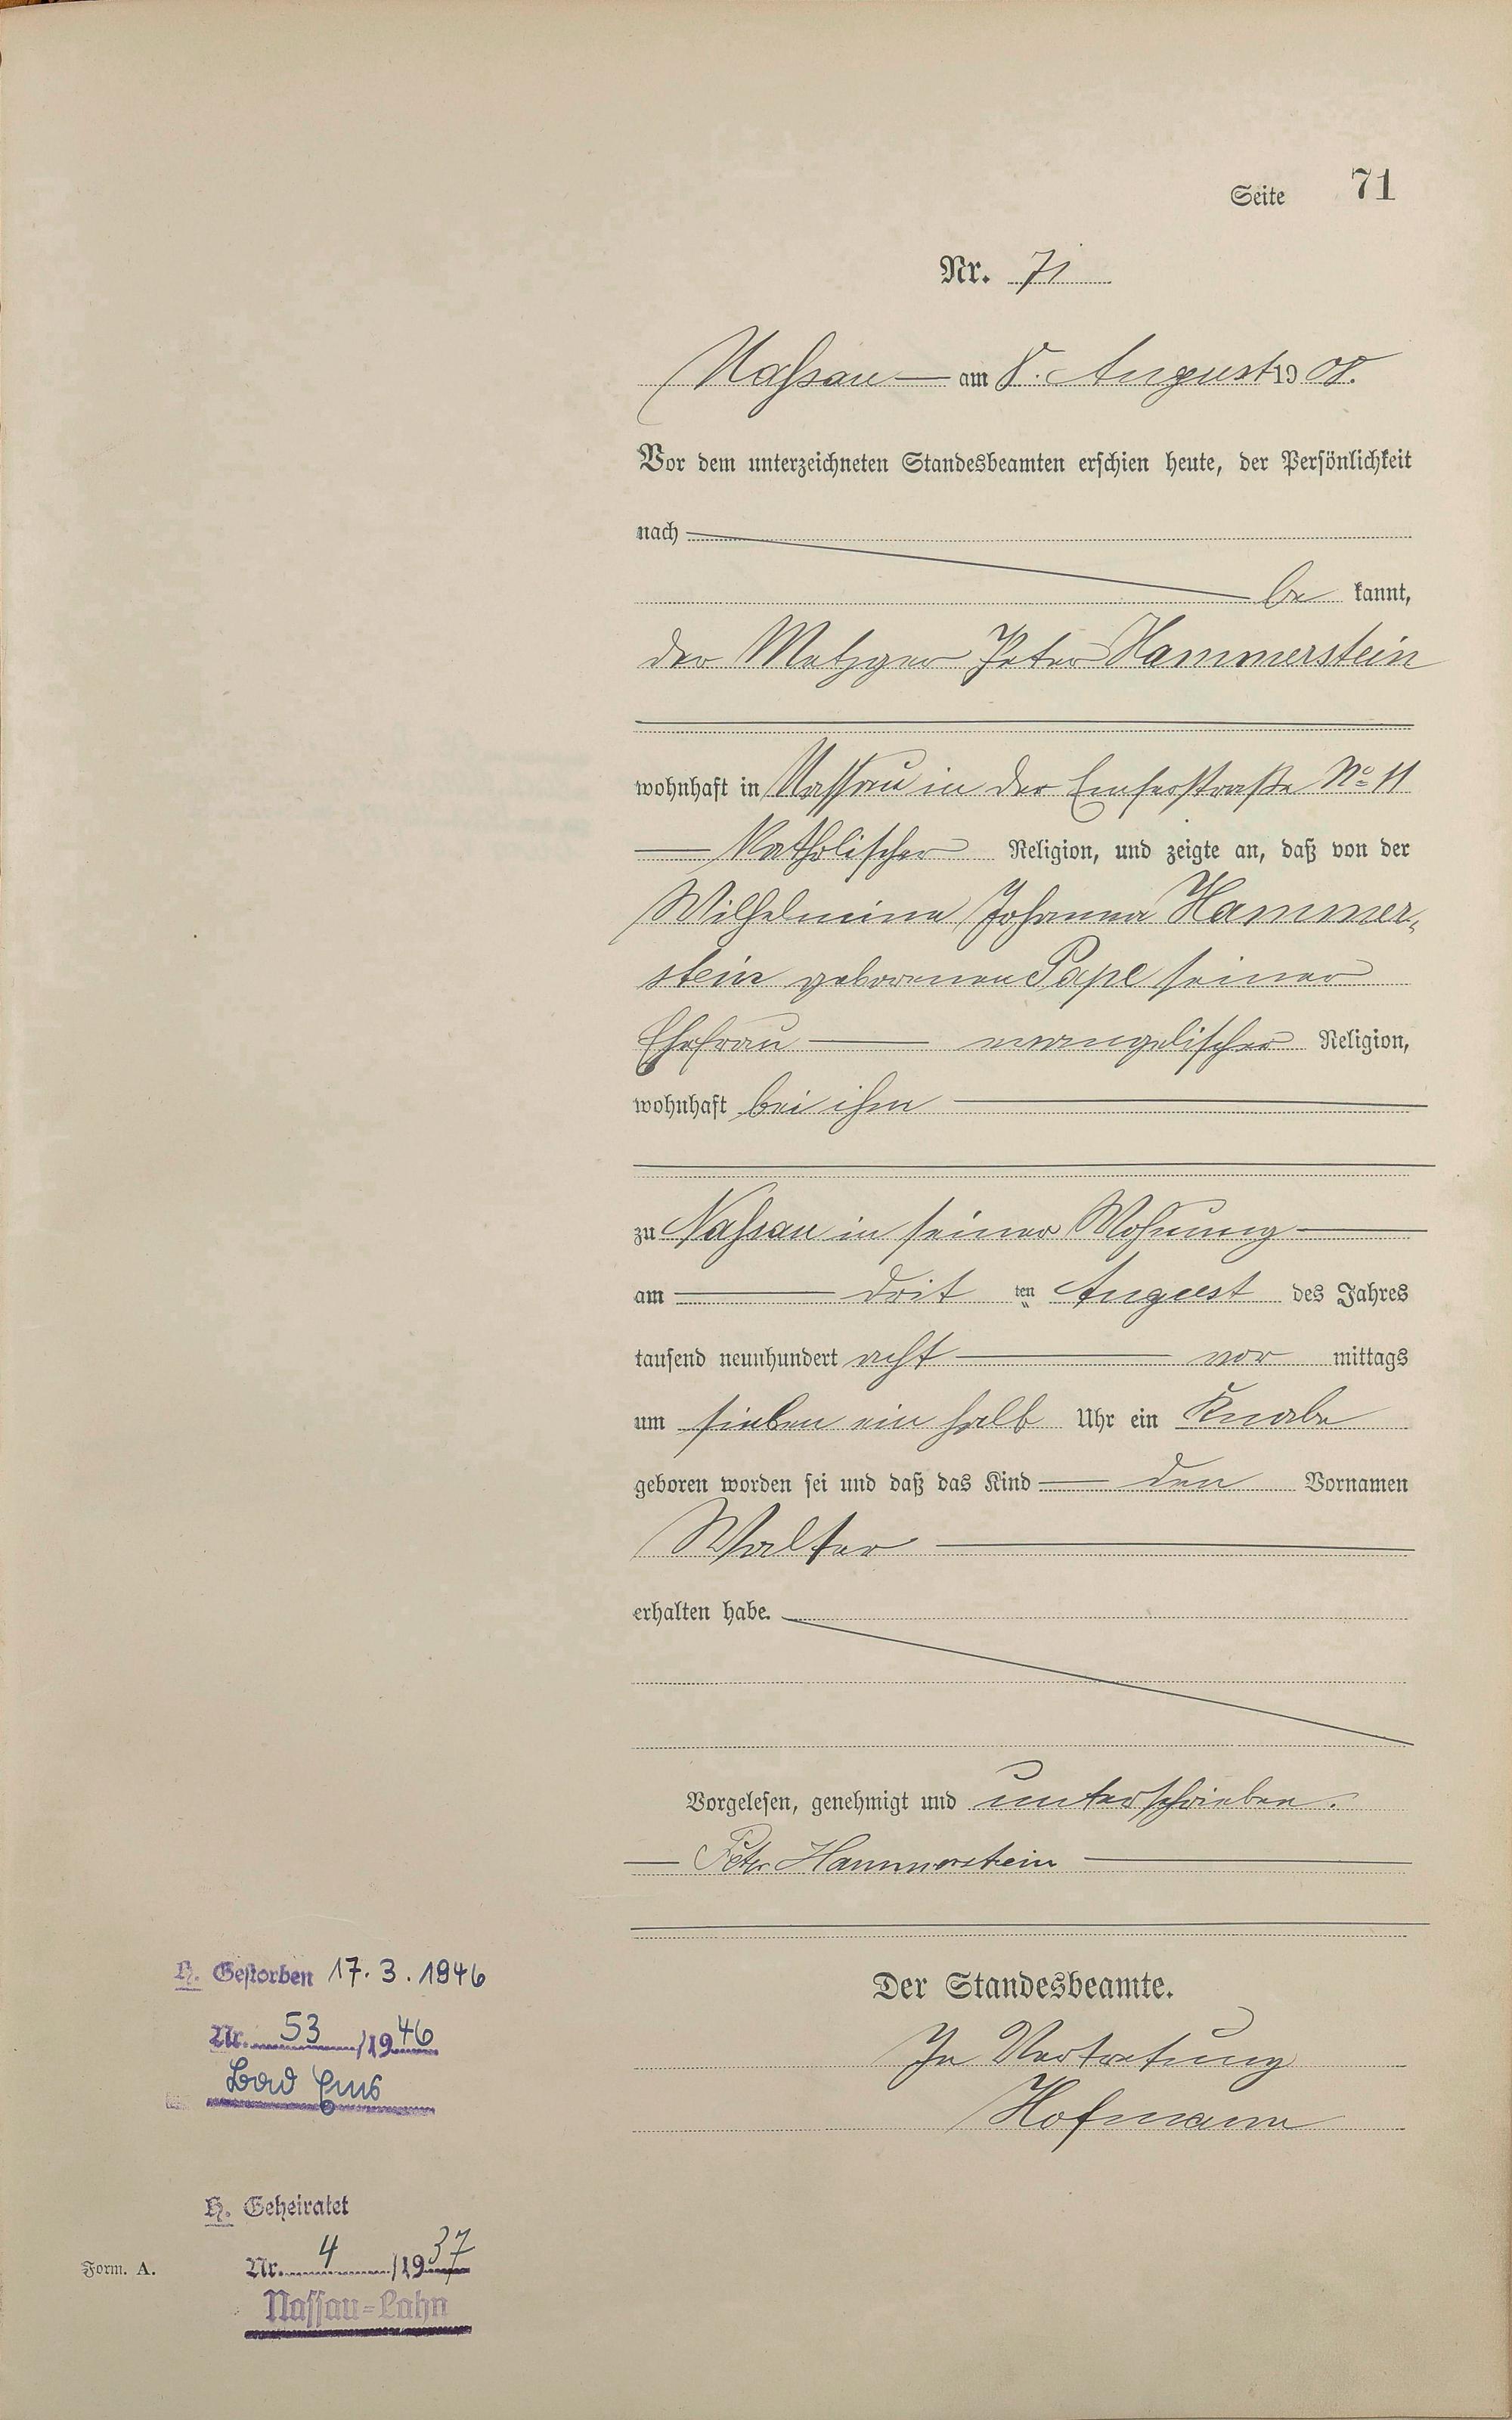 Seite 71
Nr. 71
Nassau am 8. August 1908.
Vor dem unterzeichneten Standesbeamten erschien heute, der Persönlichkeit
nach
be kannt,
der Metzger Peter Hammerstein
wohnhaft in Nassau in der Emserstraße No 11
katholischer Religion, und zeigte an, daß von der
Wilhelmine Johanna Hammer-
stein geborenen Pape seiner
Ehefrau evangelischer Religion,
wohnhaft bei ihm
zu Nassau in seiner Wohnung
am drit ten August des Jahres
tausend neunhundert acht vor mittags
um sieben ein halb Uhr ein Knabe
geboren worden sei und daß das Kind den Vornamen
Walter
erhalten habe.
Vorgelesen, genehmigt und unterschrieben.
Peter Hammerstein
Der Standesbeamte.
In Vertretung
Hofmann
H. Gestorben 17.3.1946
Nr. 53/1946
Bad Ems
H. Geheiratet
Nr. 4/1937
Nassau-Lahn
Form. A.